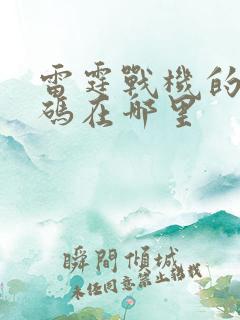 雷霆戰機的
碼在哪里
瞬間傾城
未經同意禁止轉載